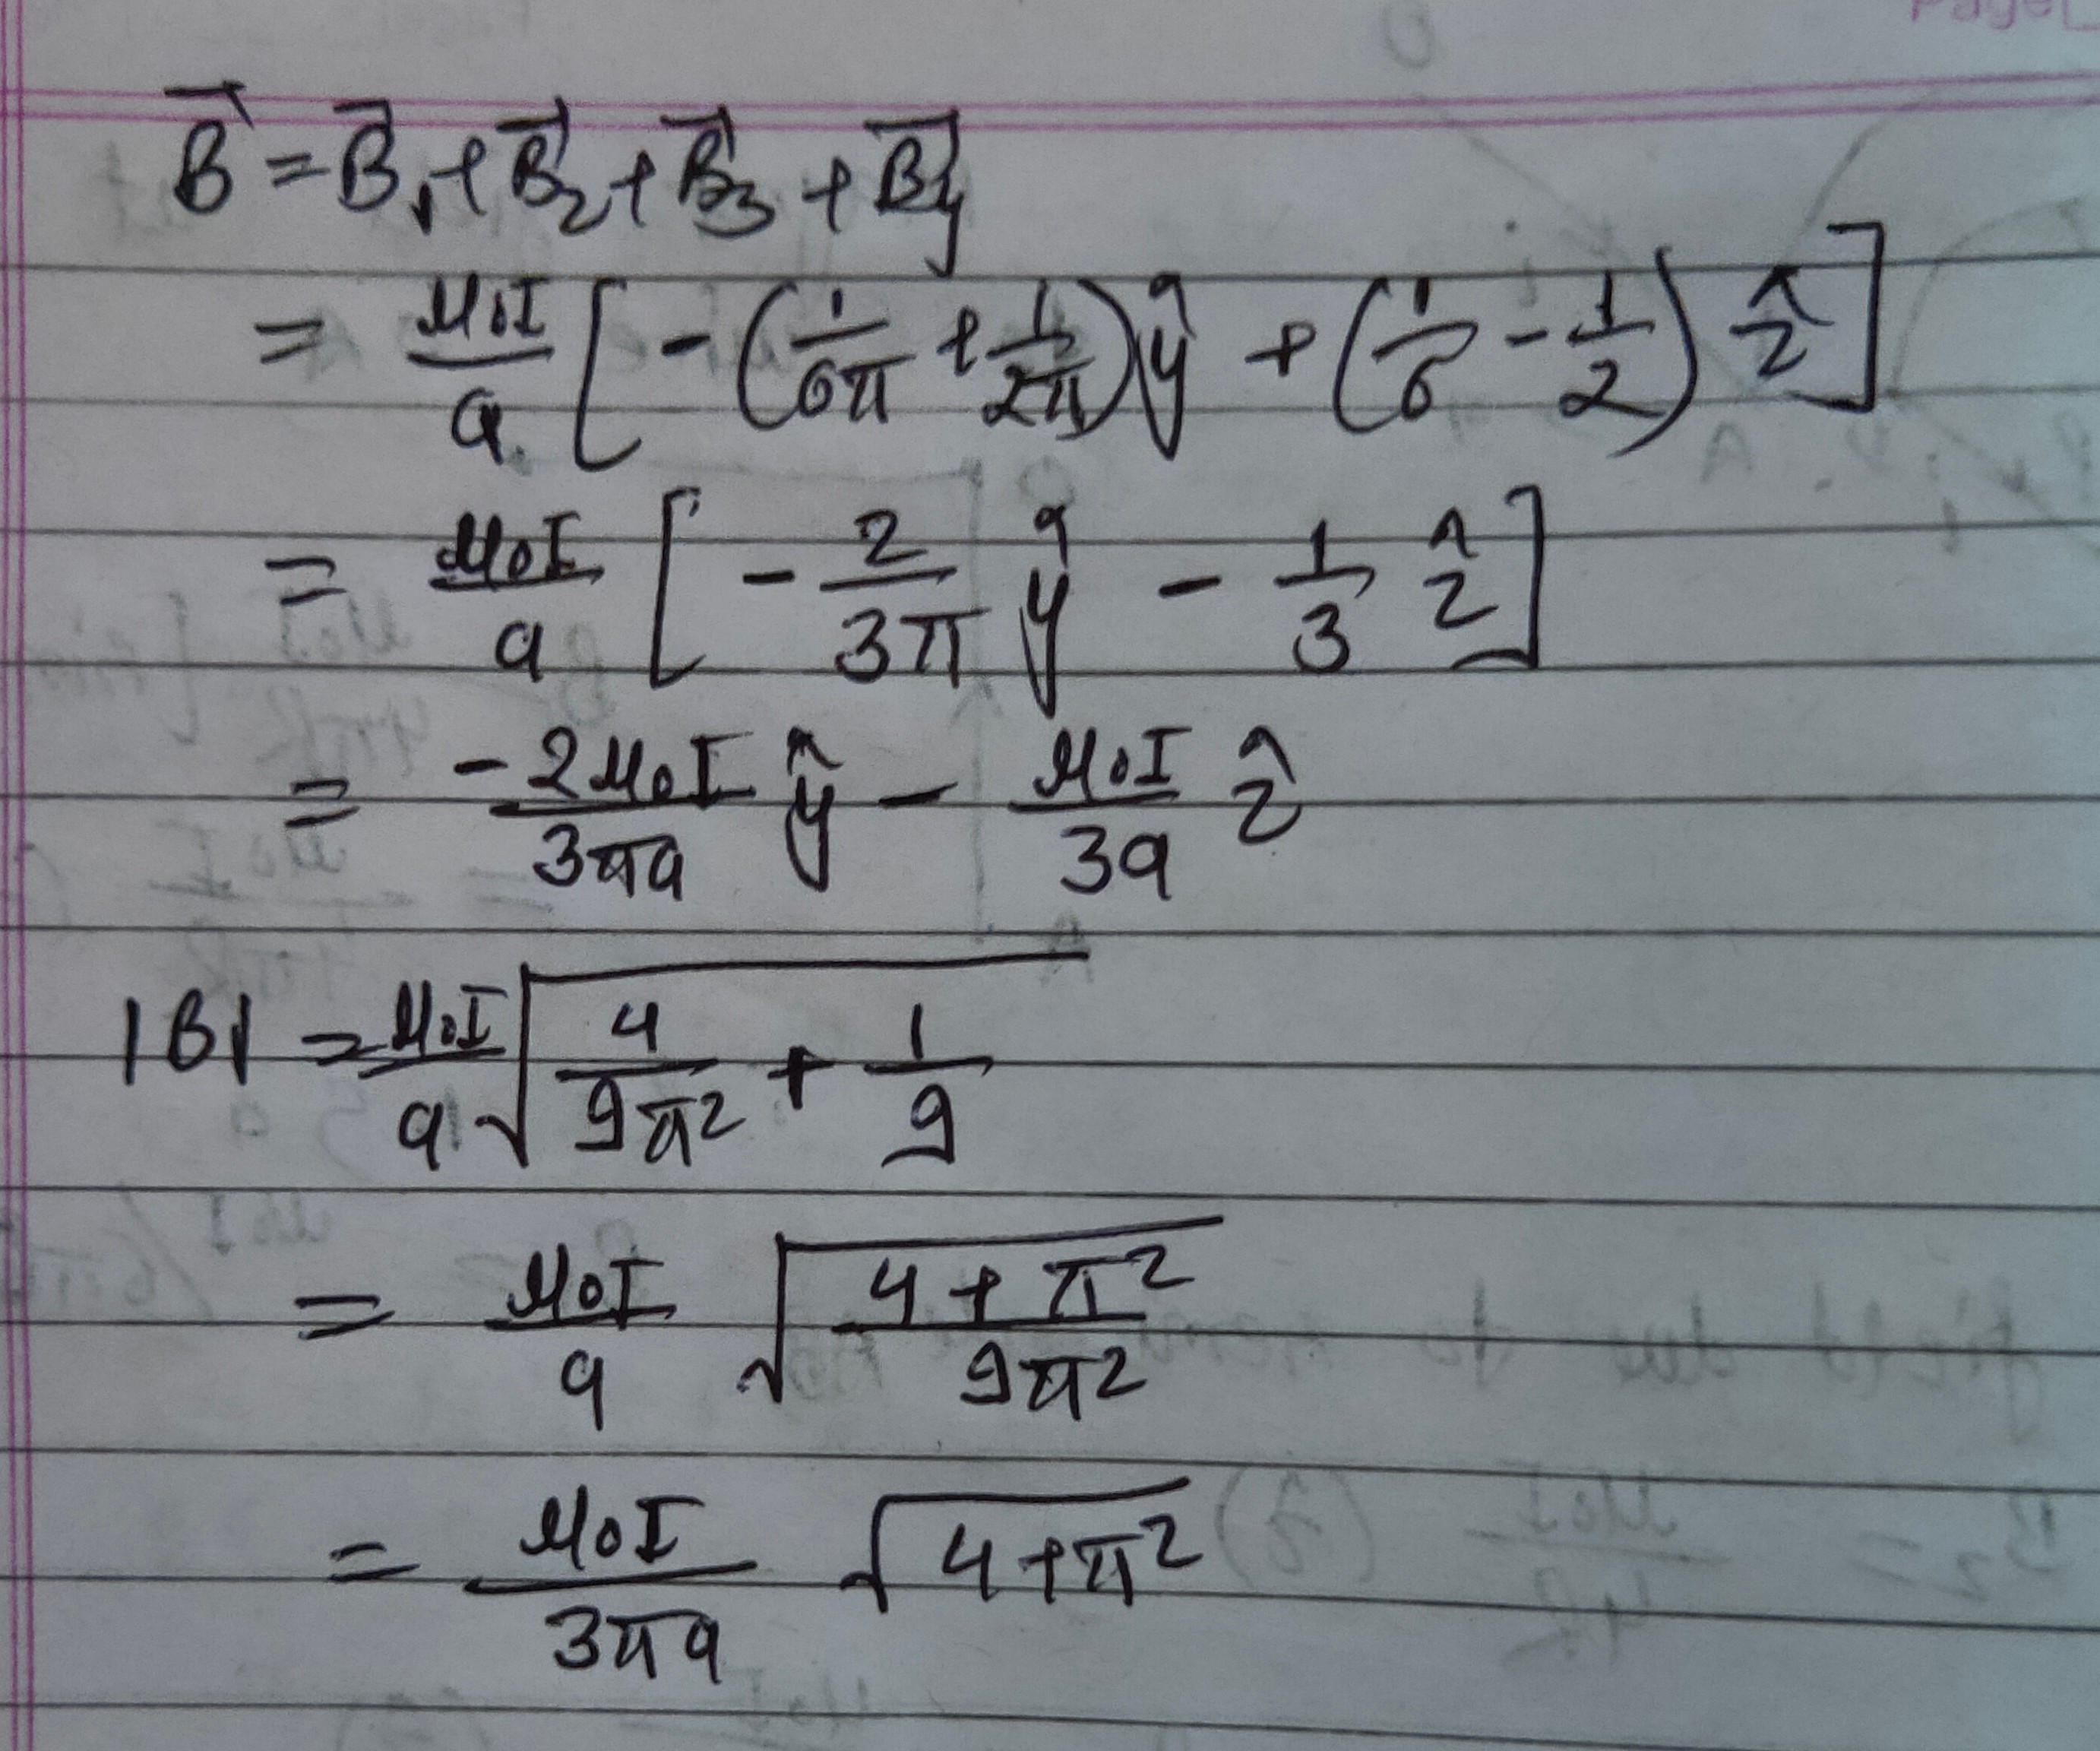 Page
B⃗ = B⃗₁ + B⃗₂ + B⃗₃ + B⃗₄
= μ₀I/a [ -(1/6π + 1/2π) ŷ + (1/6 - 1/2) ẑ ]
= μ₀I/a [ - 2/3π ŷ - 1/3 ẑ ]
= -2μ₀I/3πa ŷ - μ₀I/3a ẑ
|B| = μ₀I/a √(4/9π² + 1/9)
= μ₀I/a √((4+π²)/9π²)
= μ₀I/3πa √(4+π²)